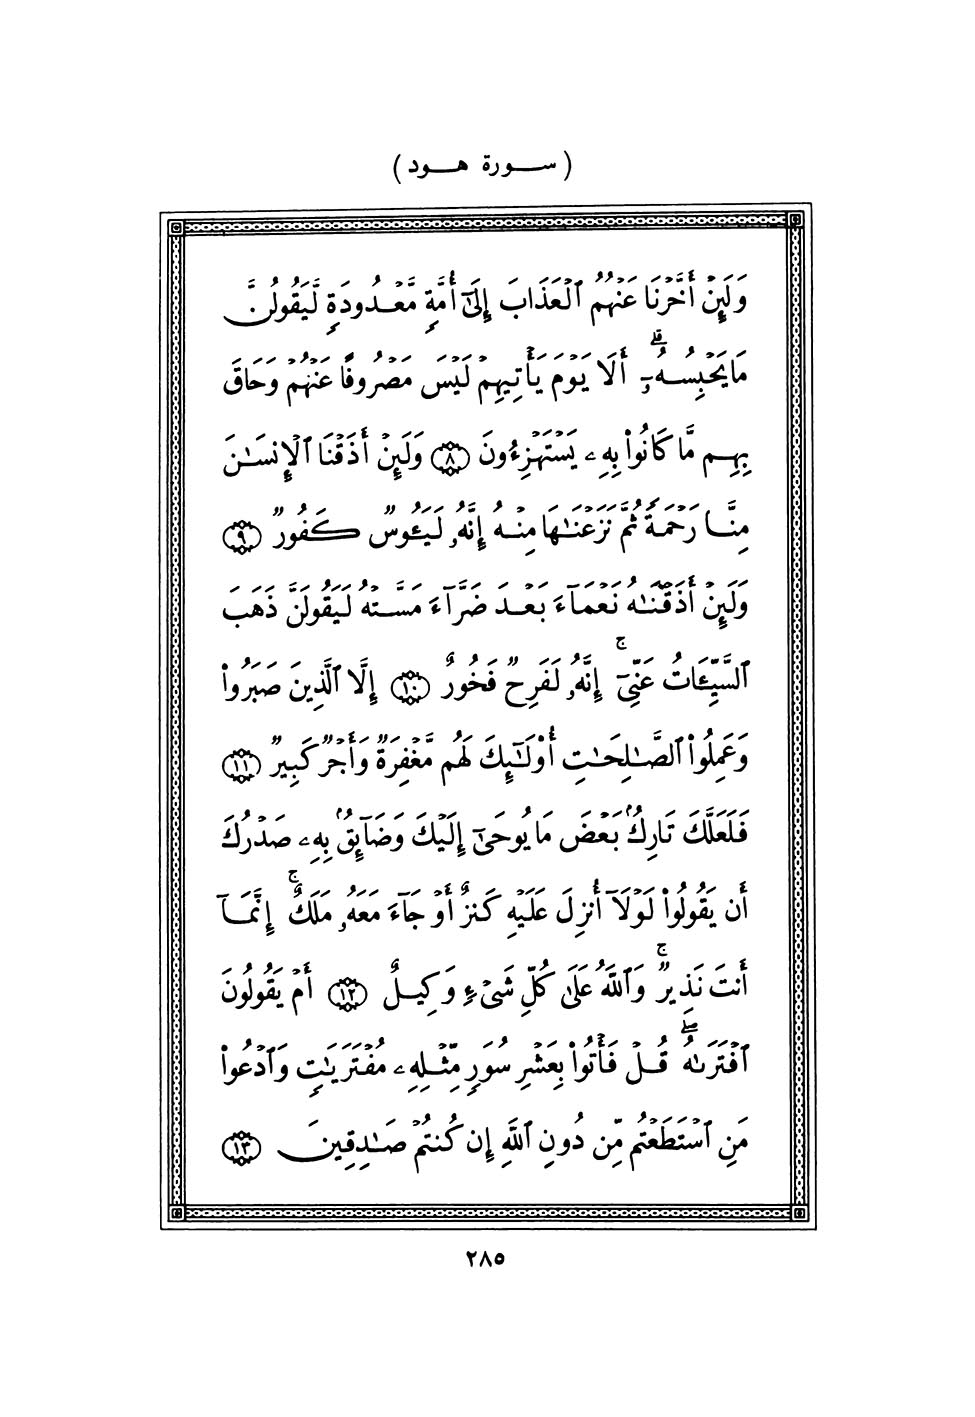 (سورة هود)
وَلَئِنْ أَخَّرْنَا عَنْهُمُ ٱلْعَذَابَ إِلَىٰٓ أُمَّةٍ مَّعْدُودَةٍ لَّيَقُولُنَّ
مَا يَحْبِسُهُۥٓ ۗ أَلَا يَوْمَ يَأْتِيهِمْ لَيْسَ مَصْرُوفًا عَنْهُمْ وَحَاقَ
بِهِم مَّا كَانُوا۟ بِهِۦ يَسْتَهْزِءُونَ ٨ وَلَئِنْ أَذَقْنَا ٱلْإِنسَـٰنَ
مِنَّا رَحْمَةً ثُمَّ نَزَعْنَـٰهَا مِنْهُ إِنَّهُۥ لَيَـُٔوسٌ كَفُورٌ ٩
وَلَئِنْ أَذَقْنَـٰهُ نَعْمَآءَ بَعْدَ ضَرَّآءَ مَسَّتْهُ لَيَقُولَنَّ ذَهَبَ
ٱلسَّيِّـَٔاتُ عَنِّىٓ ۚ إِنَّهُۥ لَفَرِحٌ فَخُورٌ ١٠ إِلَّا ٱلَّذِينَ صَبَرُوا۟
وَعَمِلُوا۟ ٱلصَّـٰلِحَـٰتِ أُو۟لَـٰٓئِكَ لَهُم مَّغْفِرَةٌ وَأَجْرٌ كَبِيرٌ ١١
فَلَعَلَّكَ تَارِكٌۢ بَعْضَ مَا يُوحَىٰٓ إِلَيْكَ وَضَآئِقٌۢ بِهِۦ صَدْرُكَ
أَن يَقُولُوا۟ لَوْلَآ أُنزِلَ عَلَيْهِ كَنزٌ أَوْ جَآءَ مَعَهُۥ مَلَكٌ ۚ إِنَّمَآ
أَنتَ نَذِيرٌ ۚ وَٱللَّهُ عَلَىٰ كُلِّ شَىْءٍ وَكِيلٌ ١٢ أَمْ يَقُولُونَ
ٱفْتَرَىٰهُ ۖ قُلْ فَأْتُوا۟ بِعَشْرِ سُوَرٍ مِّثْلِهِۦ مُفْتَرَيَـٰتٍ وَٱدْعُوا۟
مَنِ ٱسْتَطَعْتُم مِّن دُونِ ٱللَّهِ إِن كُنتُمْ صَـٰدِقِينَ ١٣
٢٨٥